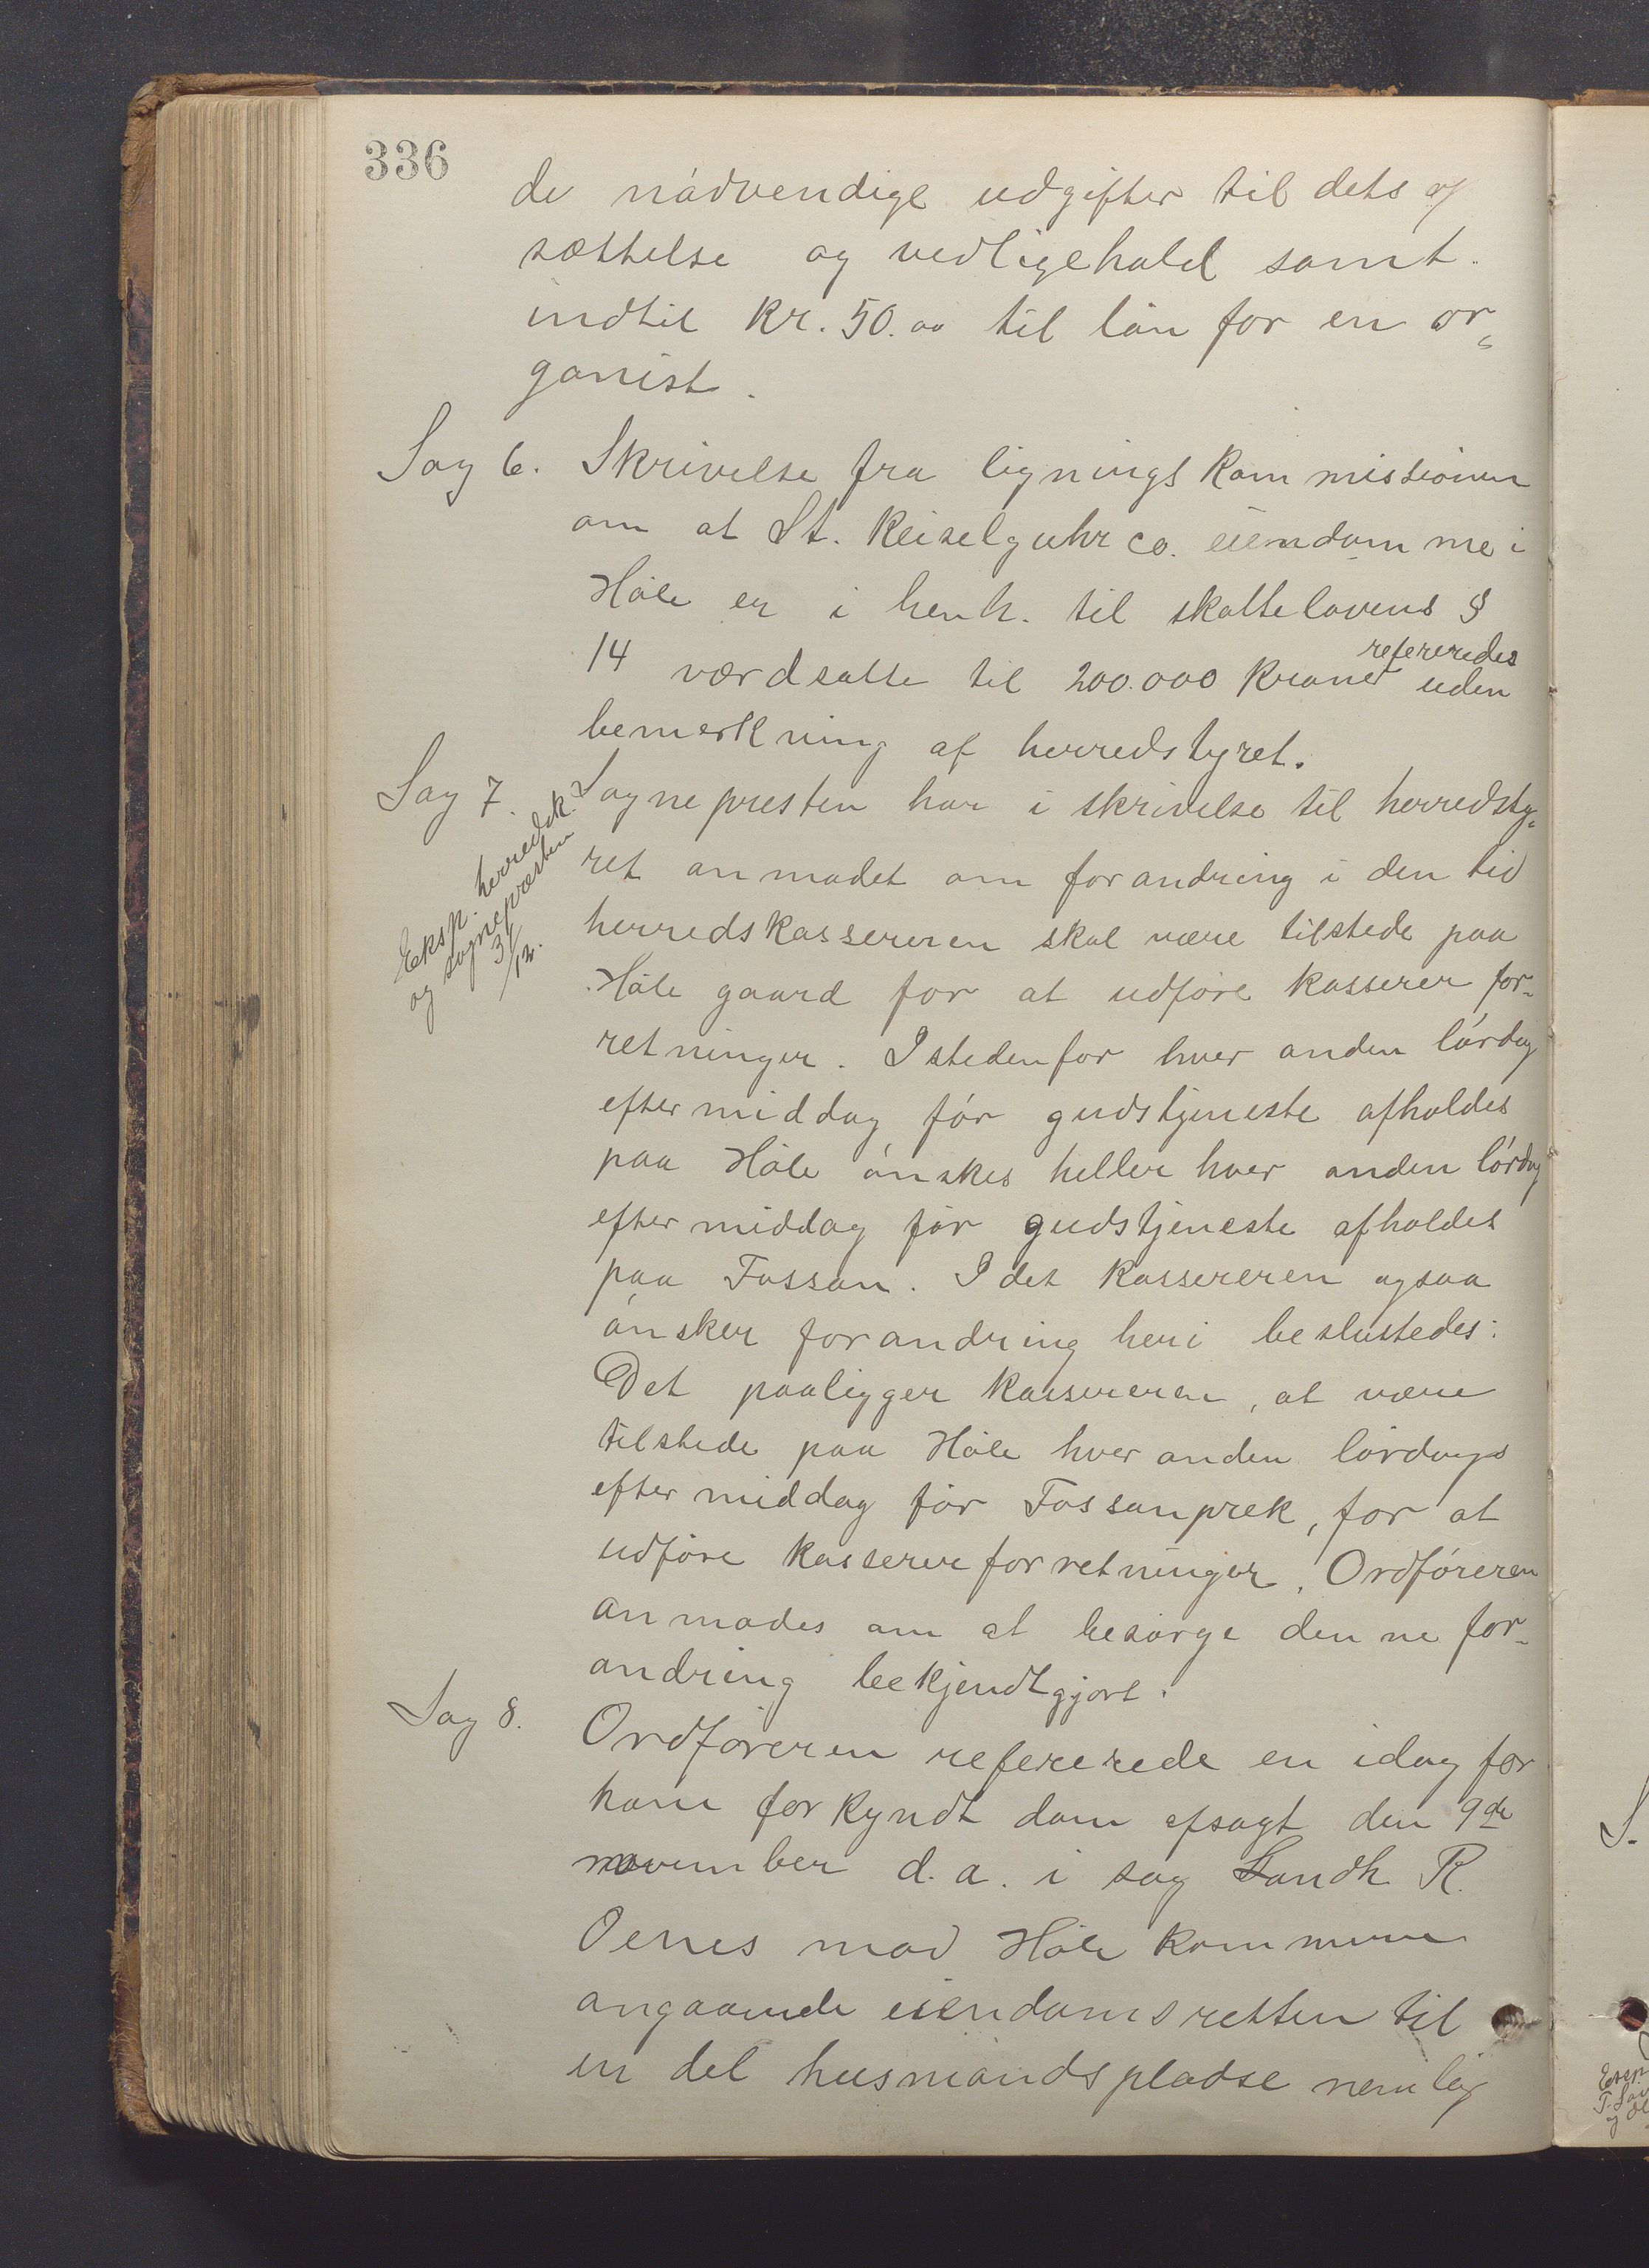 336
de nödvendige udgifter til dets af
sættelse og vedligehold samt
indtil Kr. 50.00 til lön for en or„
ganist.
Sag 6. Skrivelse fra lignings Kommissionen
om at St. Keiselguhr co. eiendomme i
Höle er i henh. til skattelovens §
14 værdsatte til 200.000 Kroner refereredes uden
bemerkning af herredstyret.
Sag 7. Sognepresten har i skrivelse til herredsty„
Eksp. herredsk.
og sognepræsten
3/12.
ret anmodet om forandring i den tid
herredskassereren skal være tilstede paa
Höle gaard for at udföre kasserer for„
retninger. Istedenfor hver anden lördag
eftermiddag för gudstjeneste afholdes
paa Höle önskes heller hver anden lördag
eftermiddag för gudstjeneste afholdes
paa Fossan. Idet Kassereren ogsaa
önsker forandring heri besluttedes:
Det paaligger Kassereren, at være
tilstede paa Höle hver anden lördags
eftermiddag för Fossanprek, for at
udföre Kassererforretninger. Ordföreren
anmodes om at besörge denne for„
andring bekjendtgjort.
Sag 8. Ordföreren refererede en idag for
ham forkyndt dom afsagt den 9de
november d.a. i sag Landh. R.
Oenes mod Höle Kommune
angaaende eiendomsretten til
en del husmandspladse nemlig
S.